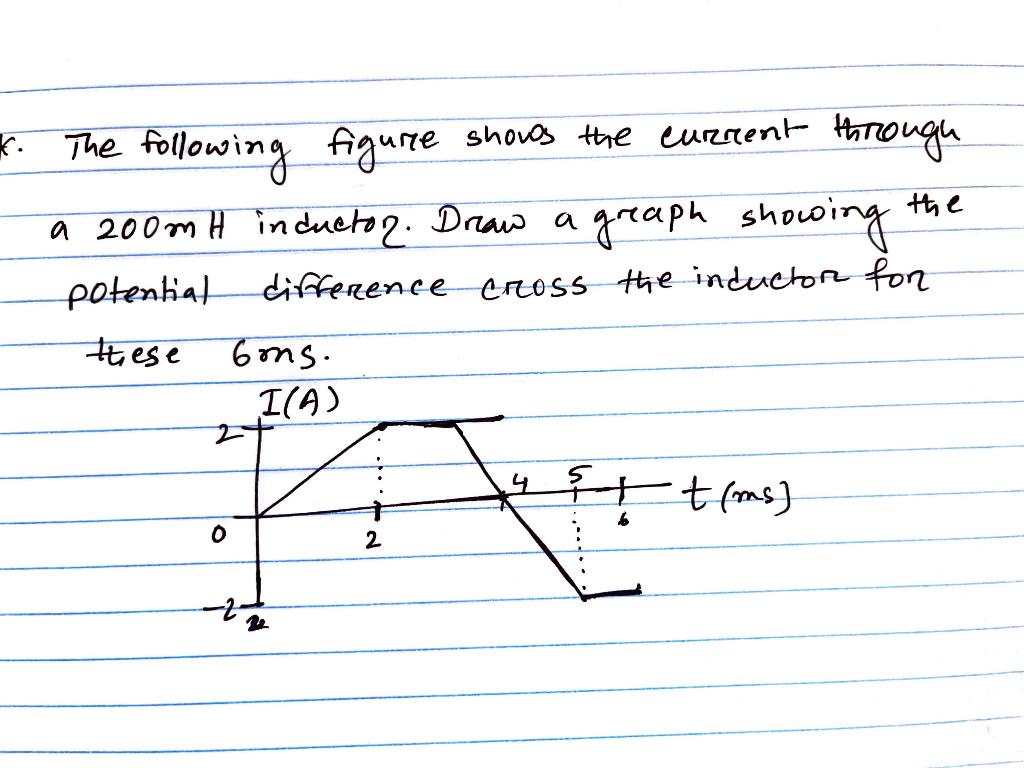 The following figure shows the current through
a 200mH inductor. Draw a graph showing the
potential difference cross the inductor for
these 6ms.
I(A)
2
4 5
t (ms)
0
2
6
-2